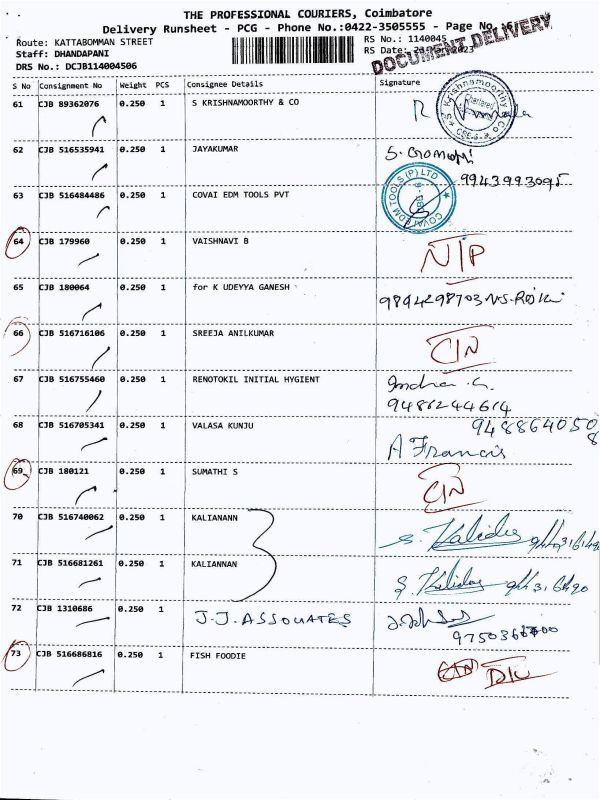 THE PROFESSIONAL COURIERS, Coimbatore
Delivery Runsheet - PCG - Phone No.:0422-3505555 - Page No.:6
Route: KATTABOMMAN STREET
Staff: DHANDAPANI
DRS No.: DCJB114004506
RS No.: 1140045
RS Date:
DOCUMENT DELIVERY
S No Consignment No Weight PCS Consignee Details Signature
61 CJB 89362076 0.250 1 S KRISHNAMOORTHY & CO
S Krishnamoorthy & Co
Chartered
62 CJB 516535941 0.250 1 JAYAKUMAR
9943993095
63 CJB 516484486 0.250 1 COVAI EDM TOOLS PVT
COVAI EDM TOOLS (P) LTD
64 CJB 179960 0.250 1 VAISHNAVI B
N/P
65 CJB 180064 0.250 1 for K UDEYYA GANESH
9894298703
66 CJB 516716106 0.250 1 SREEJA ANILKUMAR
CIN
67 CJB 516755460 0.250 1 RENOTOKIL INITIAL HYGIENT
9486244614
68 CJB 516705341 0.250 1 VALASA KUNJU
9488640508
A Francis
69 CJB 180121 0.250 1 SUMATHI S
CIN
70 CJB 516740062 0.250 1 KALIANANN
71 CJB 516681261 0.250 1 KALIANNAN
72 CJB 1310686 0.250 1 J.J. ASSOUATES
73 CJB 516686816 0.250 1 FISH FOODIE